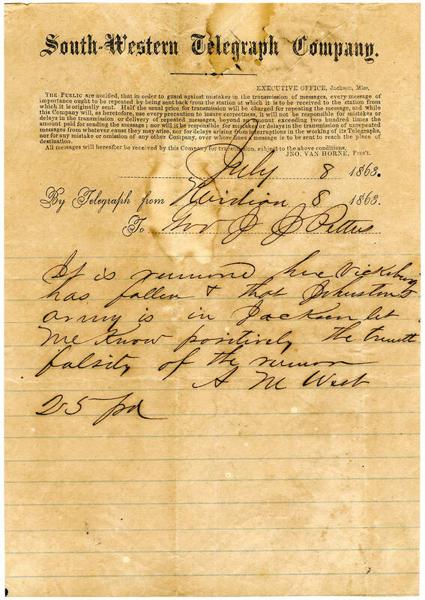 South-Western Telegraph Company.
EXECUTIVE OFFICE, Jackson, Miss.
THE PUBLIC are notified, that in order to guard against mistakes in the transmission of messages, every message of
importance ought to be repeated by being sent back from the station at which it is to be received to the station from
which it is originally sent. Half the usual price for transmission will be charged for repeating the message, and while
this Company will, as heretofore, use every precaution to insure correctness, it will not be responsible for mistakes or
delays in the transmission or delivery of repeated messages, beyond an amount exceeding two hundred times the
amount paid for sending the message; nor will it be responsible for mistakes or delays in the transmission of unrepeated
messages from whatever cause they may arise, nor for delays arising from interruptions in the working of its Telegraphs,
nor for any mistake or omission of any other Company, over whose lines a message is to be sent to reach the place of
destination.
All messages will hereafter be received by this Company for transmission, subject to the above conditions.
JNO. VAN HORNE, Pres't.
July 8 1863.
By Telegraph from Meridian 8 1863.
To Gov J J Pettus
It is rumored here Vicksburg
has fallen & that Johnston's
army is in Jackson let
me know positively the truth
falsity of the rumor
A M West
25 pd